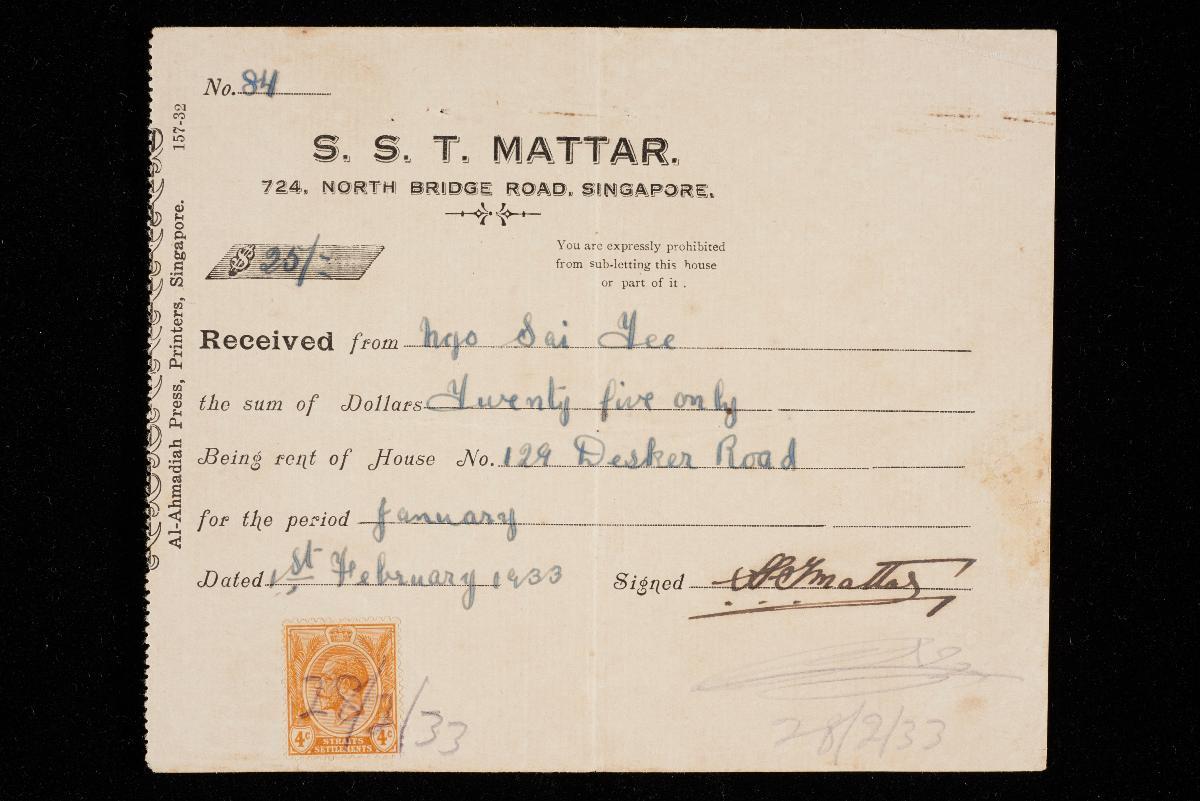 No. 84
S. S. T. MATTAR.
724, NORTH BRIDGE ROAD, SINGAPORE.
$ 25/-
You are expressly prohibited
from sub-letting this house
or part of it .
Received from Ngo Sai Yee
the sum of Dollars Twenty five only
Being rent of House No. 129 Desker Road
for the period January
Dated 1st February 1933
Signed SSTMattar
4c STRAITS SETTLEMENTS 4c
/33
28/2/33
Al-Ahmadiah Press, Printers, Singapore. 157-32